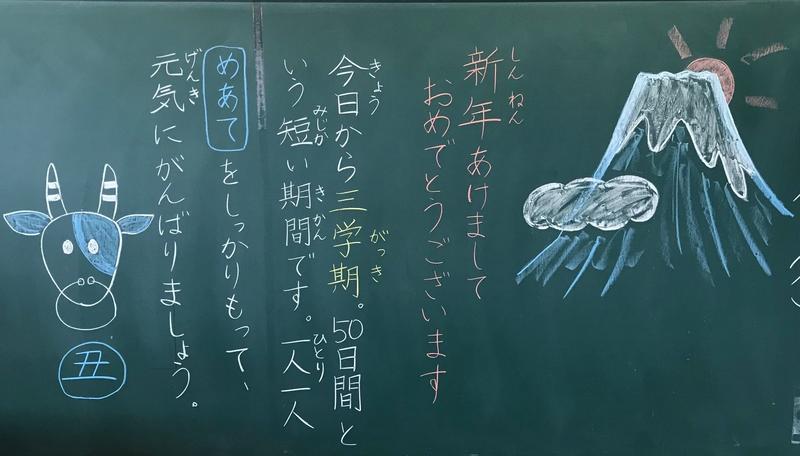 新年あけまして
しんねん
おめでとうございます
今日から三学期。50日間と
きょう
がっき
いう短い期間です。一人一人
みじか
きかん
ひとり
めあてをしっかりもって、
元気にがんばりましょう。
げんき
丑